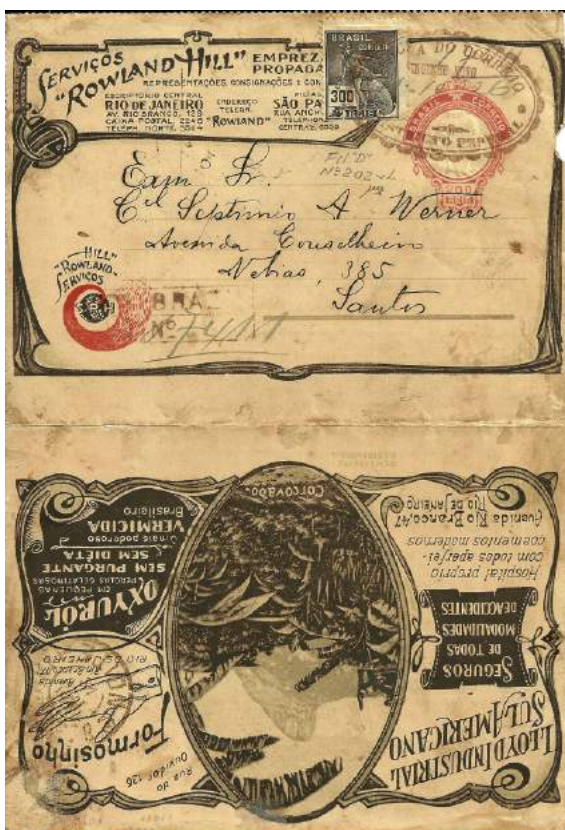 SERVIÇOS
"ROWLAND HILL"
EMPREZ
PROPAGA
REPRESENTAÇÕES, CONSIGNAÇÕES E CON
ESCRIPTORIO CENTRAL
RIO DE JANEIRO
AV. RIO BRANCO, 129
CAIXA POSTAL 2245
TELEPH. NORTE, 5364
ENDEREÇO
TELEGR.
"ROWLAND"
FILIAL
SÃO PA
RUA ANCH
TELEPHON
CENTRAL
BRASIL
CORREIO
300
BRASIL
CORREIO
200
Nº 202
Exm Sr.
Cel Septimio A. Werner
Avenida Conselheiro
Nebias, 385
Santos
"HILL"
"ROWLAND-
SERVIÇOS
BRA
Nº
LLOYD INDUSTRIAL
SUL AMERICANO
SEGUROS
DE TODAS
MODALIDADES
DE ACCIDENTES
Hospital proprio
com todos aperfei-
coamentos modernos
Avenida Rio Branco, 47
RIO DE JANEIRO
Corcovado.
Rua do
Ouvidor 136
Formosinho
RIO DE JANEIRO
OXYUROL
EM PEQUENAS
PEROLAS GELATINOSAS
SEM PURGANTE
SEM DIÉTA
O mais poderoso
VERMICIDA
Brasileiro